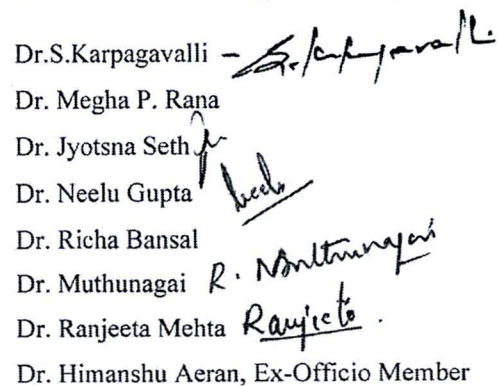 Dr.S.Karpagavalli – S. Karpagavalli
Dr. Megha P. Rana
Dr. Jyotsna Seth
Dr. Neelu Gupta Neelu
Dr. Richa Bansal
Dr. Muthunagai R. Muthunagai
Dr. Ranjeeta Mehta Ranjeeta.
Dr. Himanshu Aeran, Ex-Officio Member